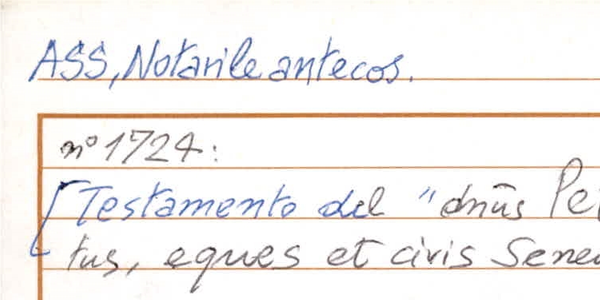 ASS, Notarile antecos.
n° 1724:
[Testamento del "dnūs Pe
tus, eques et civis Sene